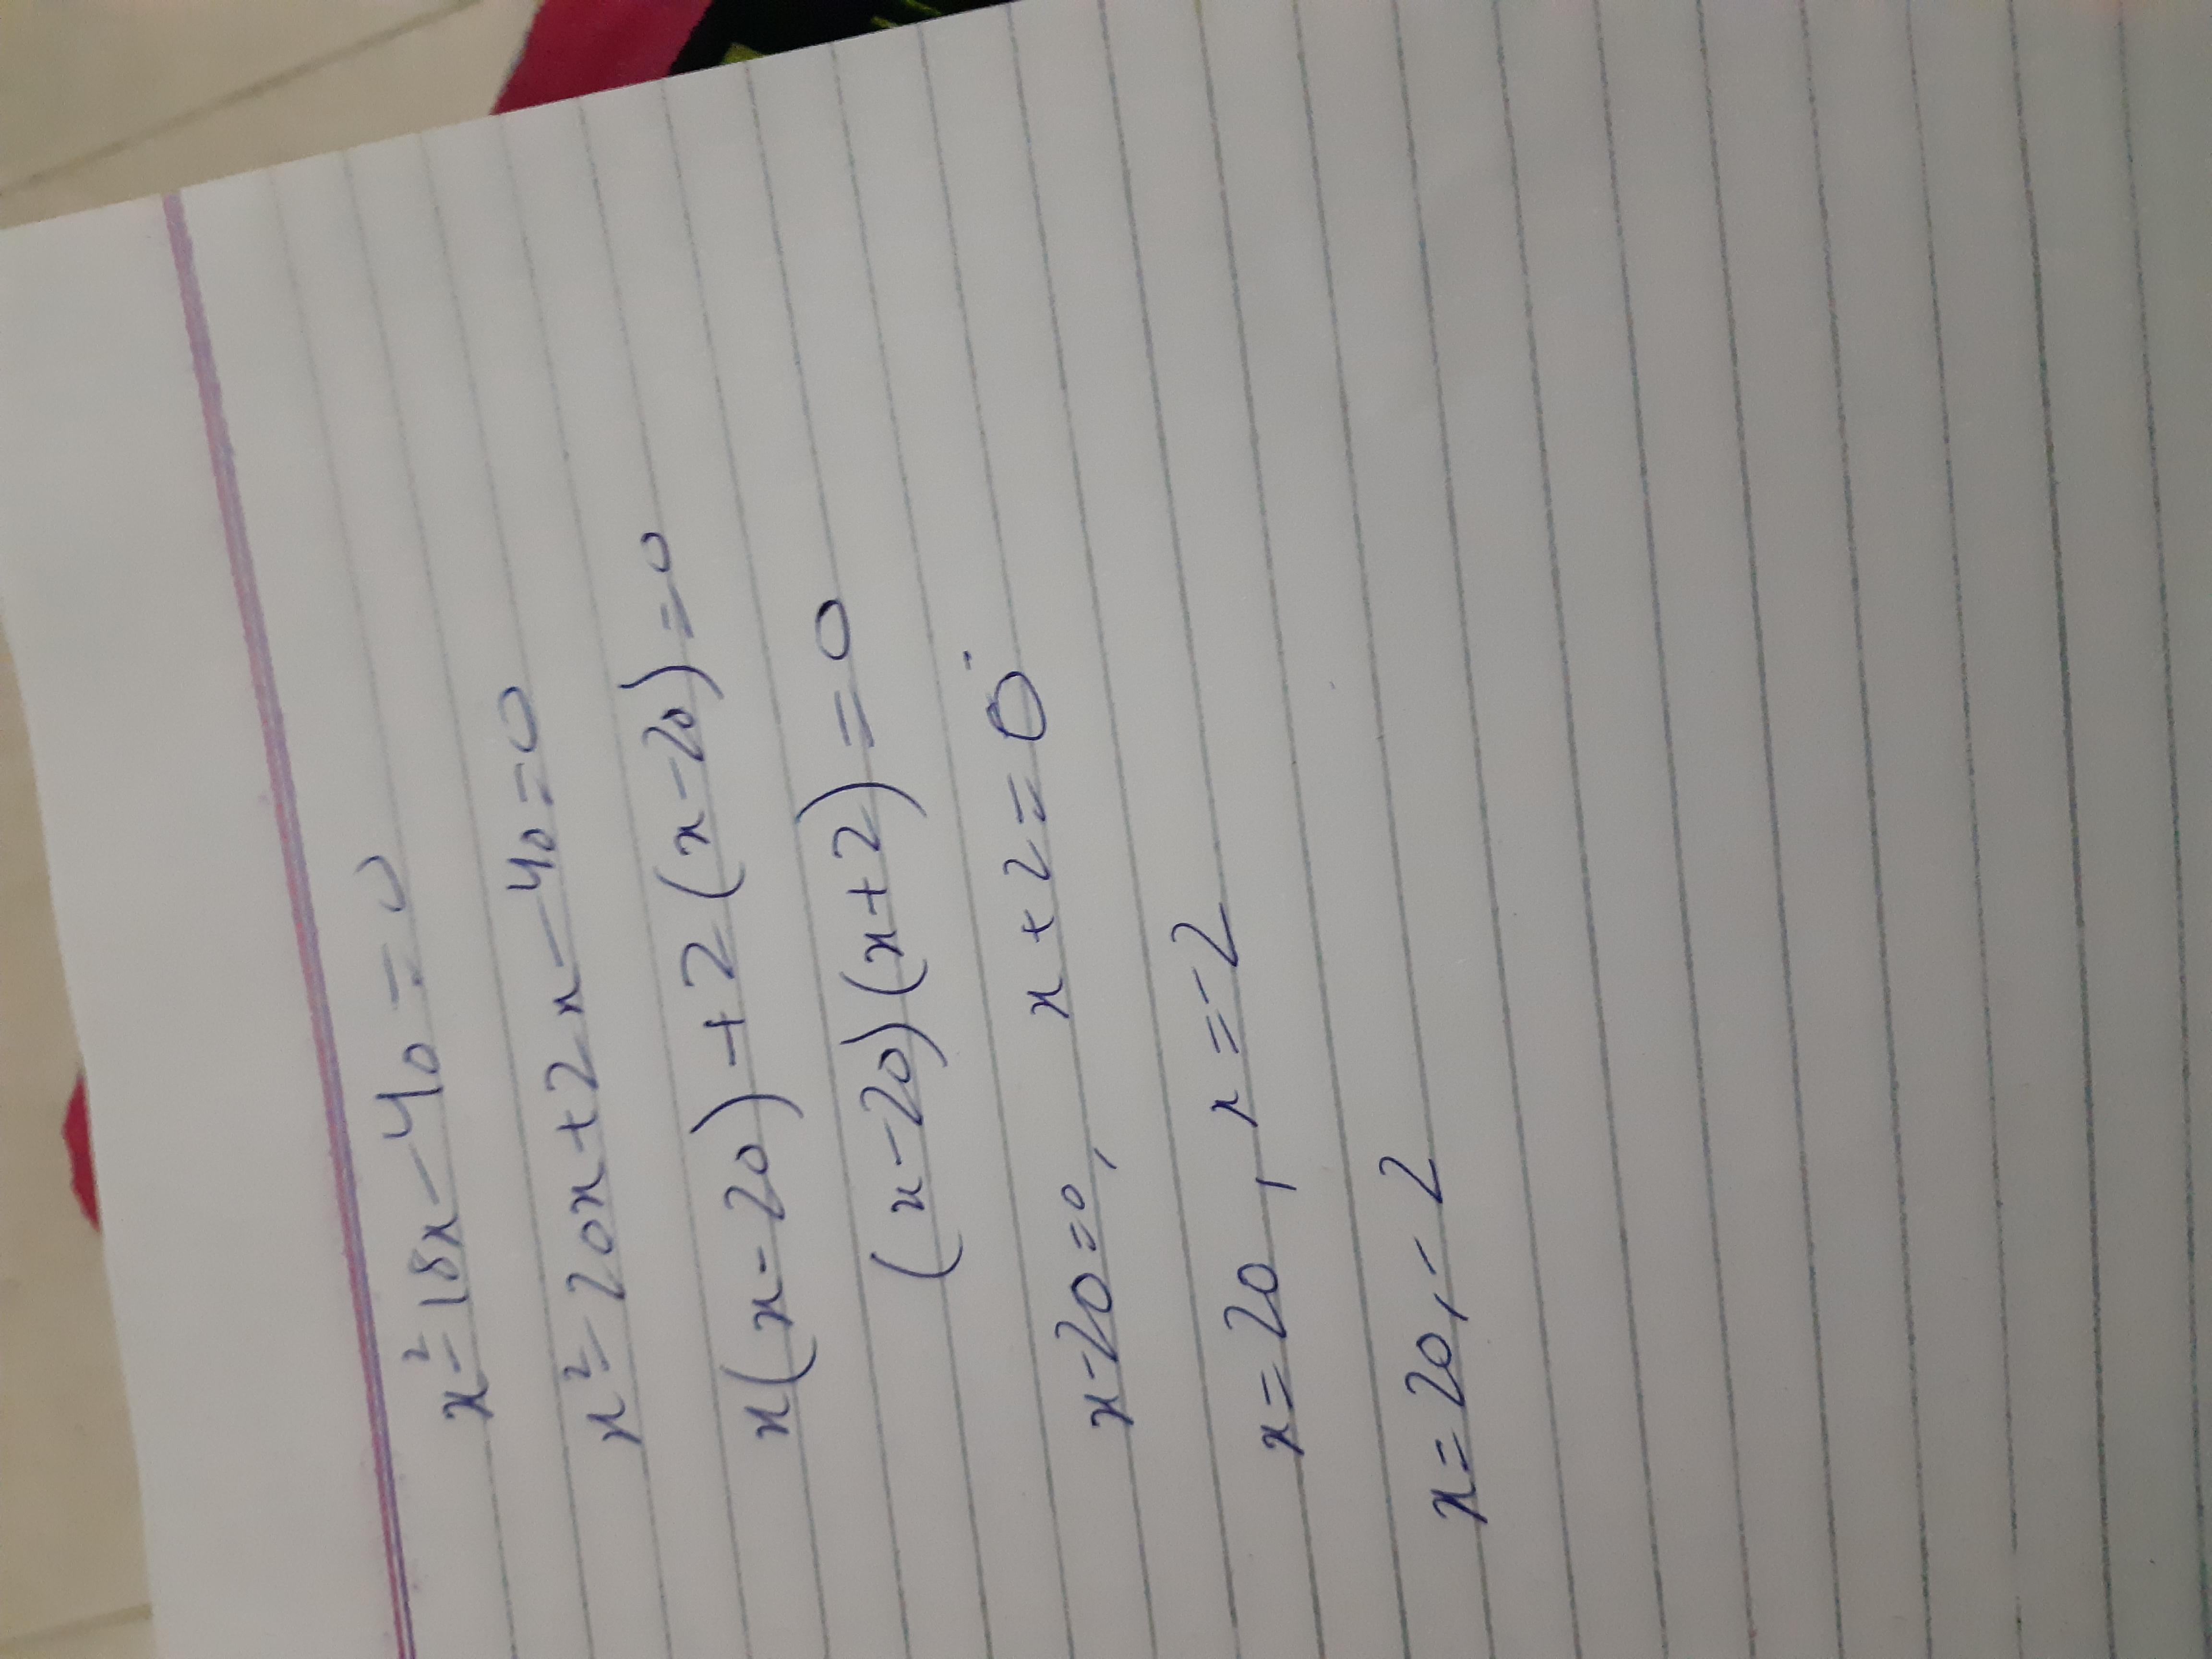 x² - 18x - 40 = 0
x² - 20x + 2x - 40 = 0
x(x - 20) + 2(x - 20) = 0
(x - 20)(x + 2) = 0
x - 20 = 0, x + 2 = 0
x = 20, x = -2
x = 20, - 2